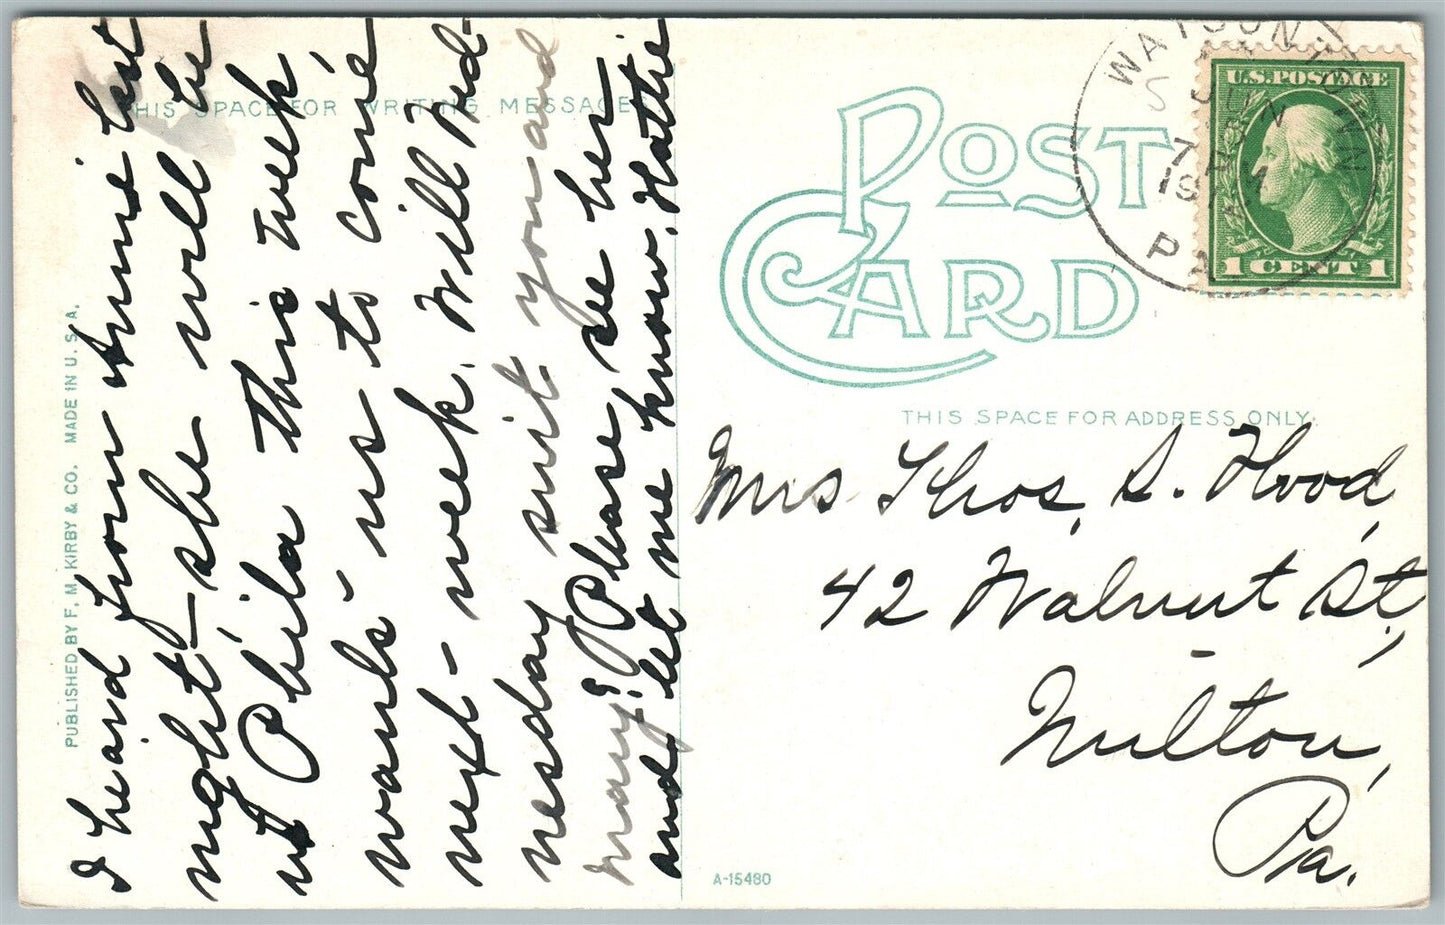 THIS SPACE FOR WRITING MESSAGES
I heard from Annie last
night - she will be
at Phila this week,
wants us to come
next - week. Will Wed-
nesday suit you and
Mary? Please see her
and let me know. Hattie
PUBLISHED BY F. M. KIRBY & CO. MADE IN U. S. A.
POST
CARD
WATSONTOWN
JUN
7
PA
U.S. POSTAGE
1 CENT 1
THIS SPACE FOR ADDRESS ONLY.
Mrs Thos, S. Hood,
42 Walnut St,
Milton,
Pa.
A-15480